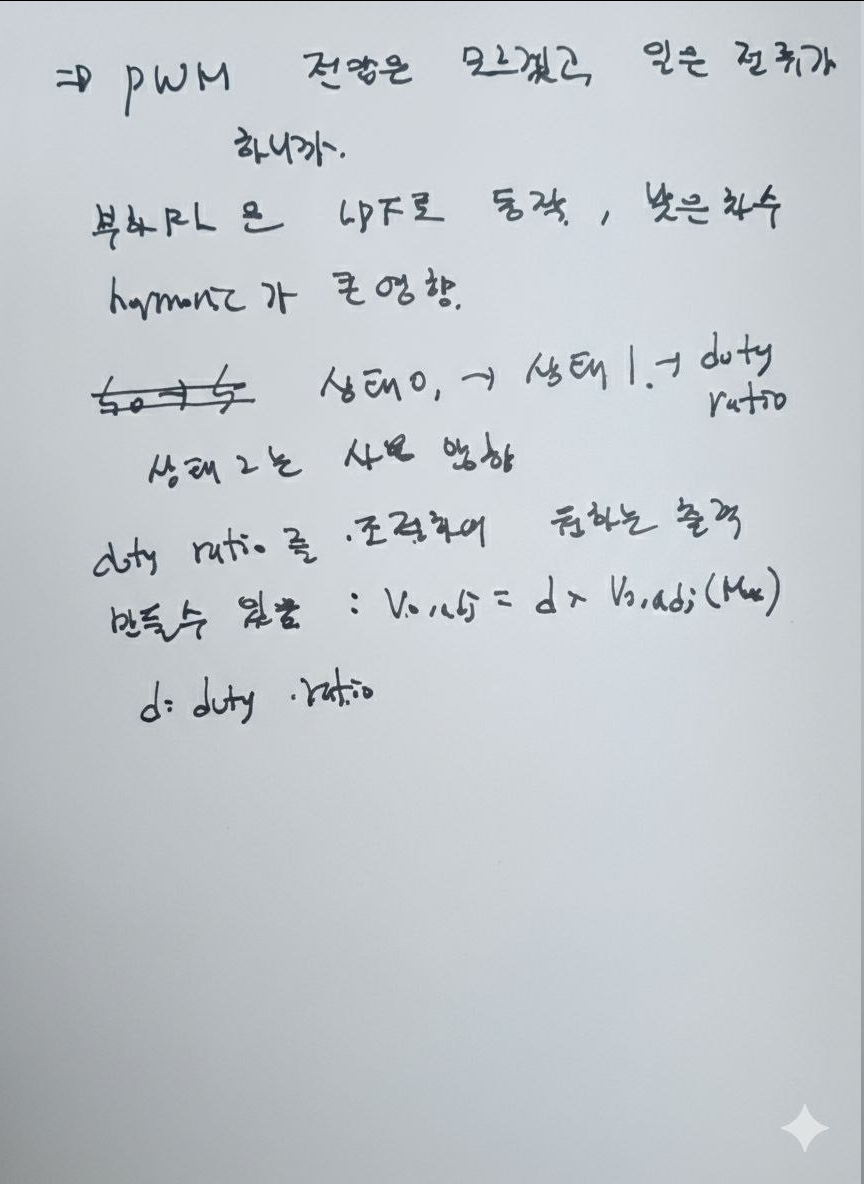 ⇒ PWM 전압은 모르겠고, 일은 전류가
하니까.
부하 RL은 LPF로 동작, 낮은 차수
harmonic가 큰 영향.
상태0, → 상태1. → duty
ratio
상태2는 사용 안함
duty ratio를 조절하여 원하는 출력
만들수 있음 : Vo,adj = d × Vo,adj(Max)
d: duty ratio